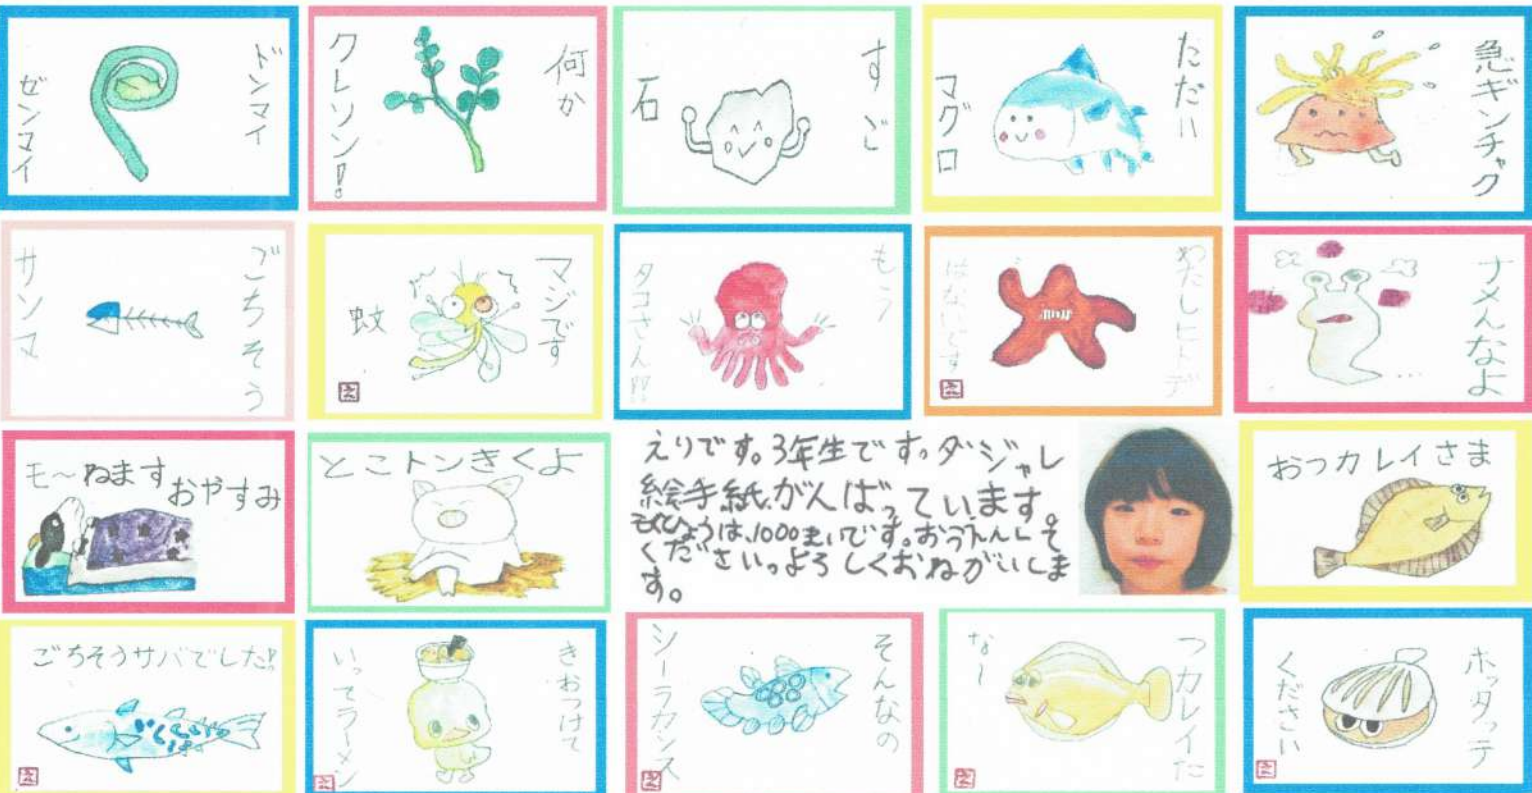 ドンマイ
ゼンマイ
何か
クレソン!
すご
石
ただい
マグロ
急ギンチャク
ごちそう
サンマ
マジです
蚊
もう
タコさん!!!
わたしヒトデ
はないです
ナメんなよ
モ〜ねます
おやすみ
とこトンきくよ
えりです。3年生です。ダジャレ
絵手紙がんばっています。
もくひょうは、1000まいです。おうえんして
ください。よろしくおねがいしま
す。
おつカレイさま
ごちそうサバでした!!
きおつけて
いってラーメン
そんなの
シーラカンス
つカレイた
な〜
ホッタッテ
ください